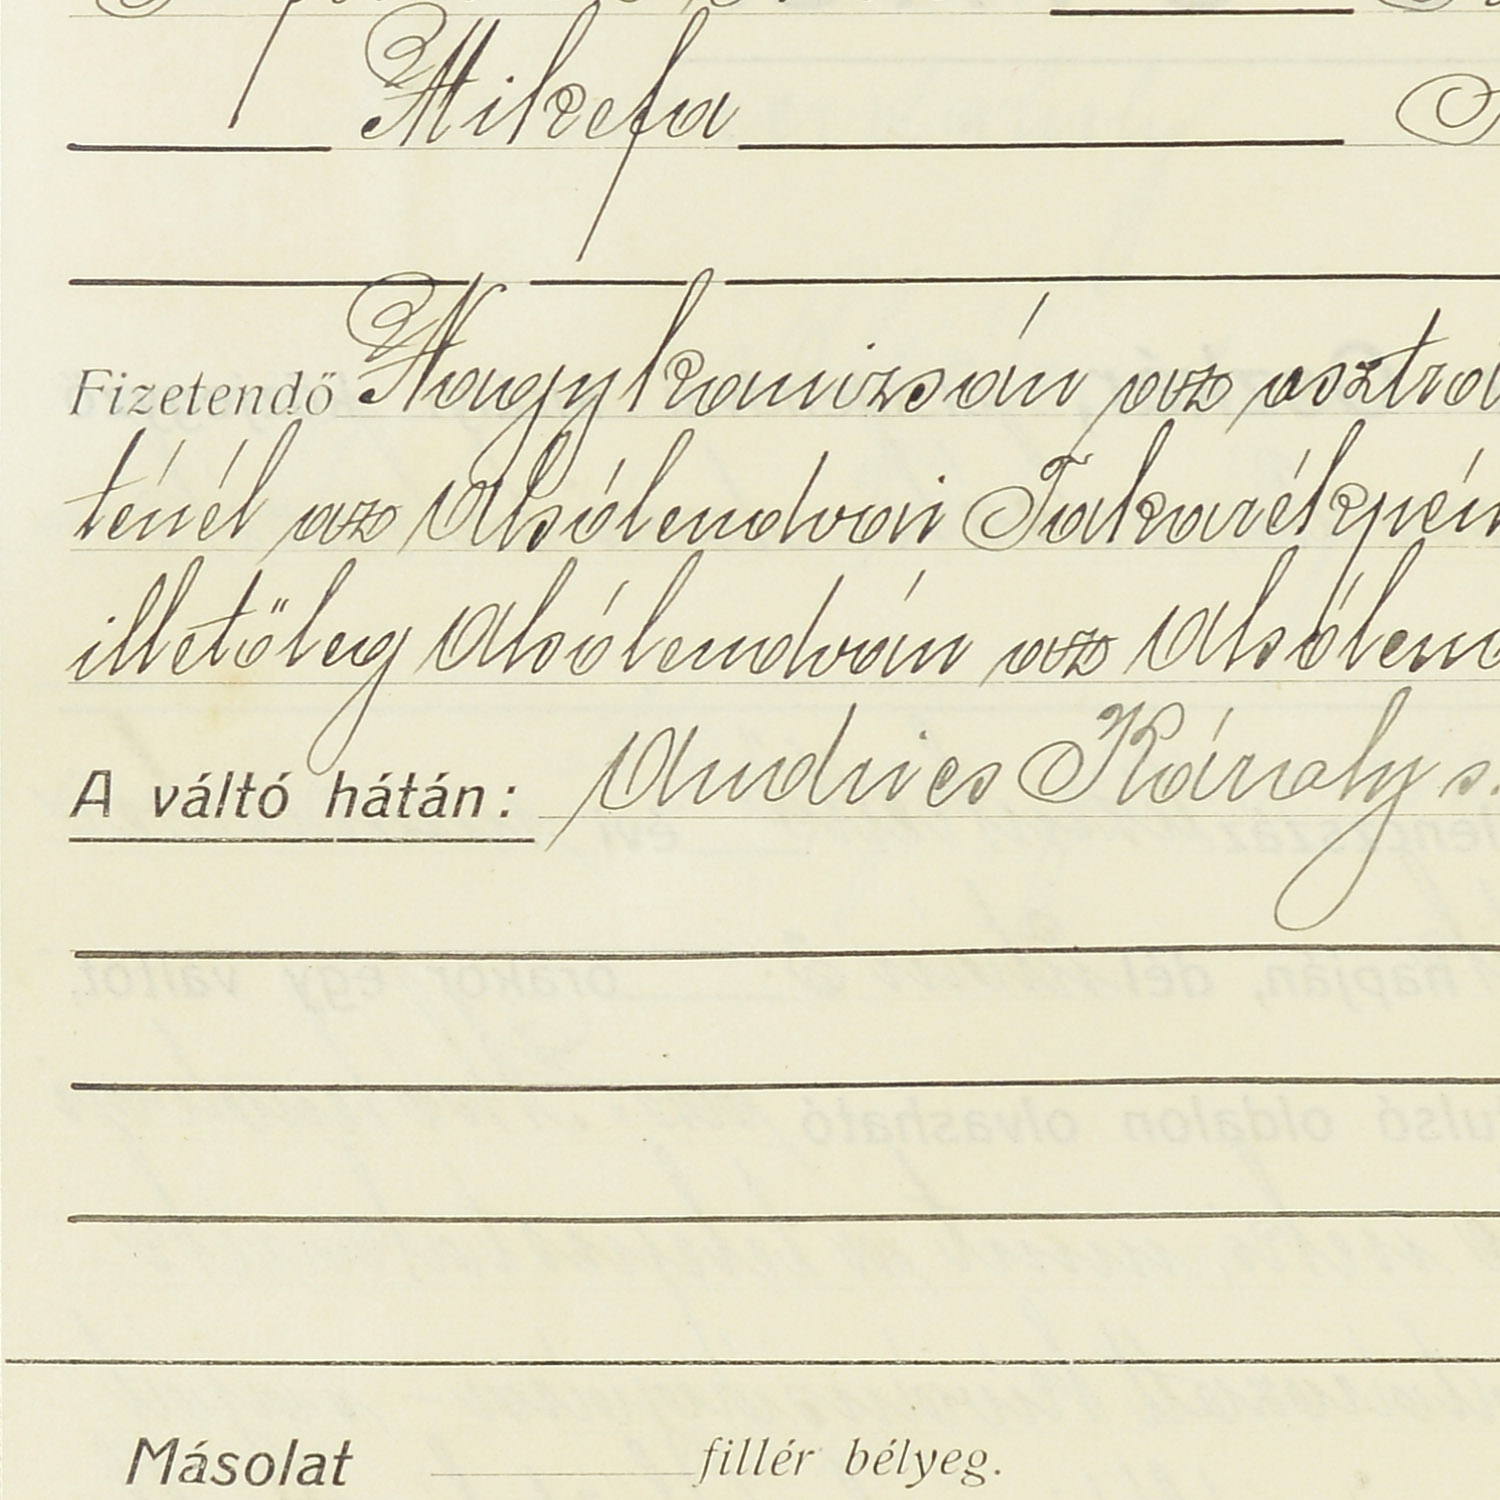 Mikefa
Fizetendő Nagykanizsán az osztrá
ténél az Alsólendvai Takarékpén
illetőleg Alsólendván az Alsólend
A váltó hátán: Andries Károly s.
Másolat fillér bélyeg.